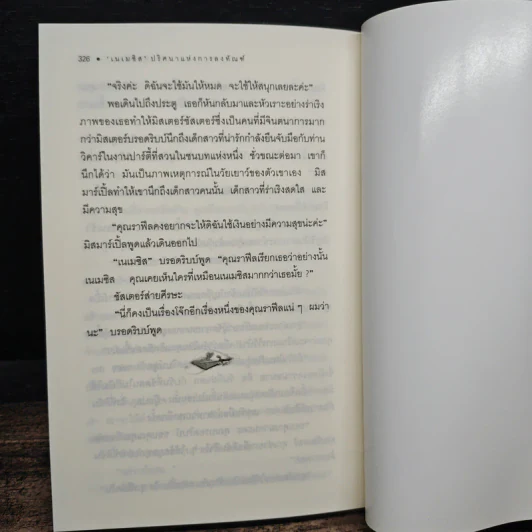 328 • "เนเมซิส" ปริศนาแห่งการลงทัณฑ์
"จริงค่ะ ดิฉันจะใช้มันให้หมด จะใช้ให้สนุกเลยละค่ะ"
พอเดินไปถึงประตู เธอก็หันกลับมาและหัวเราะอย่างร่าเริง
ภาพของเธอทำให้มิสเตอร์ชัสเตอร์ซึ่งเป็นคนที่มีจินตนาการมาก
กว่ามิสเตอร์บรอดริบบ์นึกถึงเด็กสาวที่น่ารักกำลังยืนจับมือกับท่าน
วิคาร์ในงานปาร์ตี้ที่สวนในชนบทแห่งหนึ่ง ชั่วขณะต่อมา เขาก็
นึกได้ว่า มันเป็นภาพเหตุการณ์ในวัยเยาว์ของตัวเขาเอง มิส
มาร์เปิ้ลทำให้เขานึกถึงเด็กสาวคนนั้น เด็กสาวที่ร่าเริงสดใส และ
มีความสุข
"คุณราฟีลคงอยากจะให้ดิฉันใช้เงินอย่างมีความสุขน่ะค่ะ"
มิสมาร์เปิ้ลพูดแล้วเดินออกไป
"เนเมซิส" บรอดริบบ์พูด "คุณราฟีลเรียกเธอว่าอย่างนั้น
เนเมซิส คุณเคยเห็นใครที่เหมือนเนเมซิสมากกว่าเธอมั้ย ?"
ชัสเตอร์ส่ายศีรษะ
"นี่ก็คงเป็นเรื่องโจ๊กอีกเรื่องหนึ่งของคุณราฟีลแน่ ๆ ผมว่า
นะ" บรอดริบบ์พูด